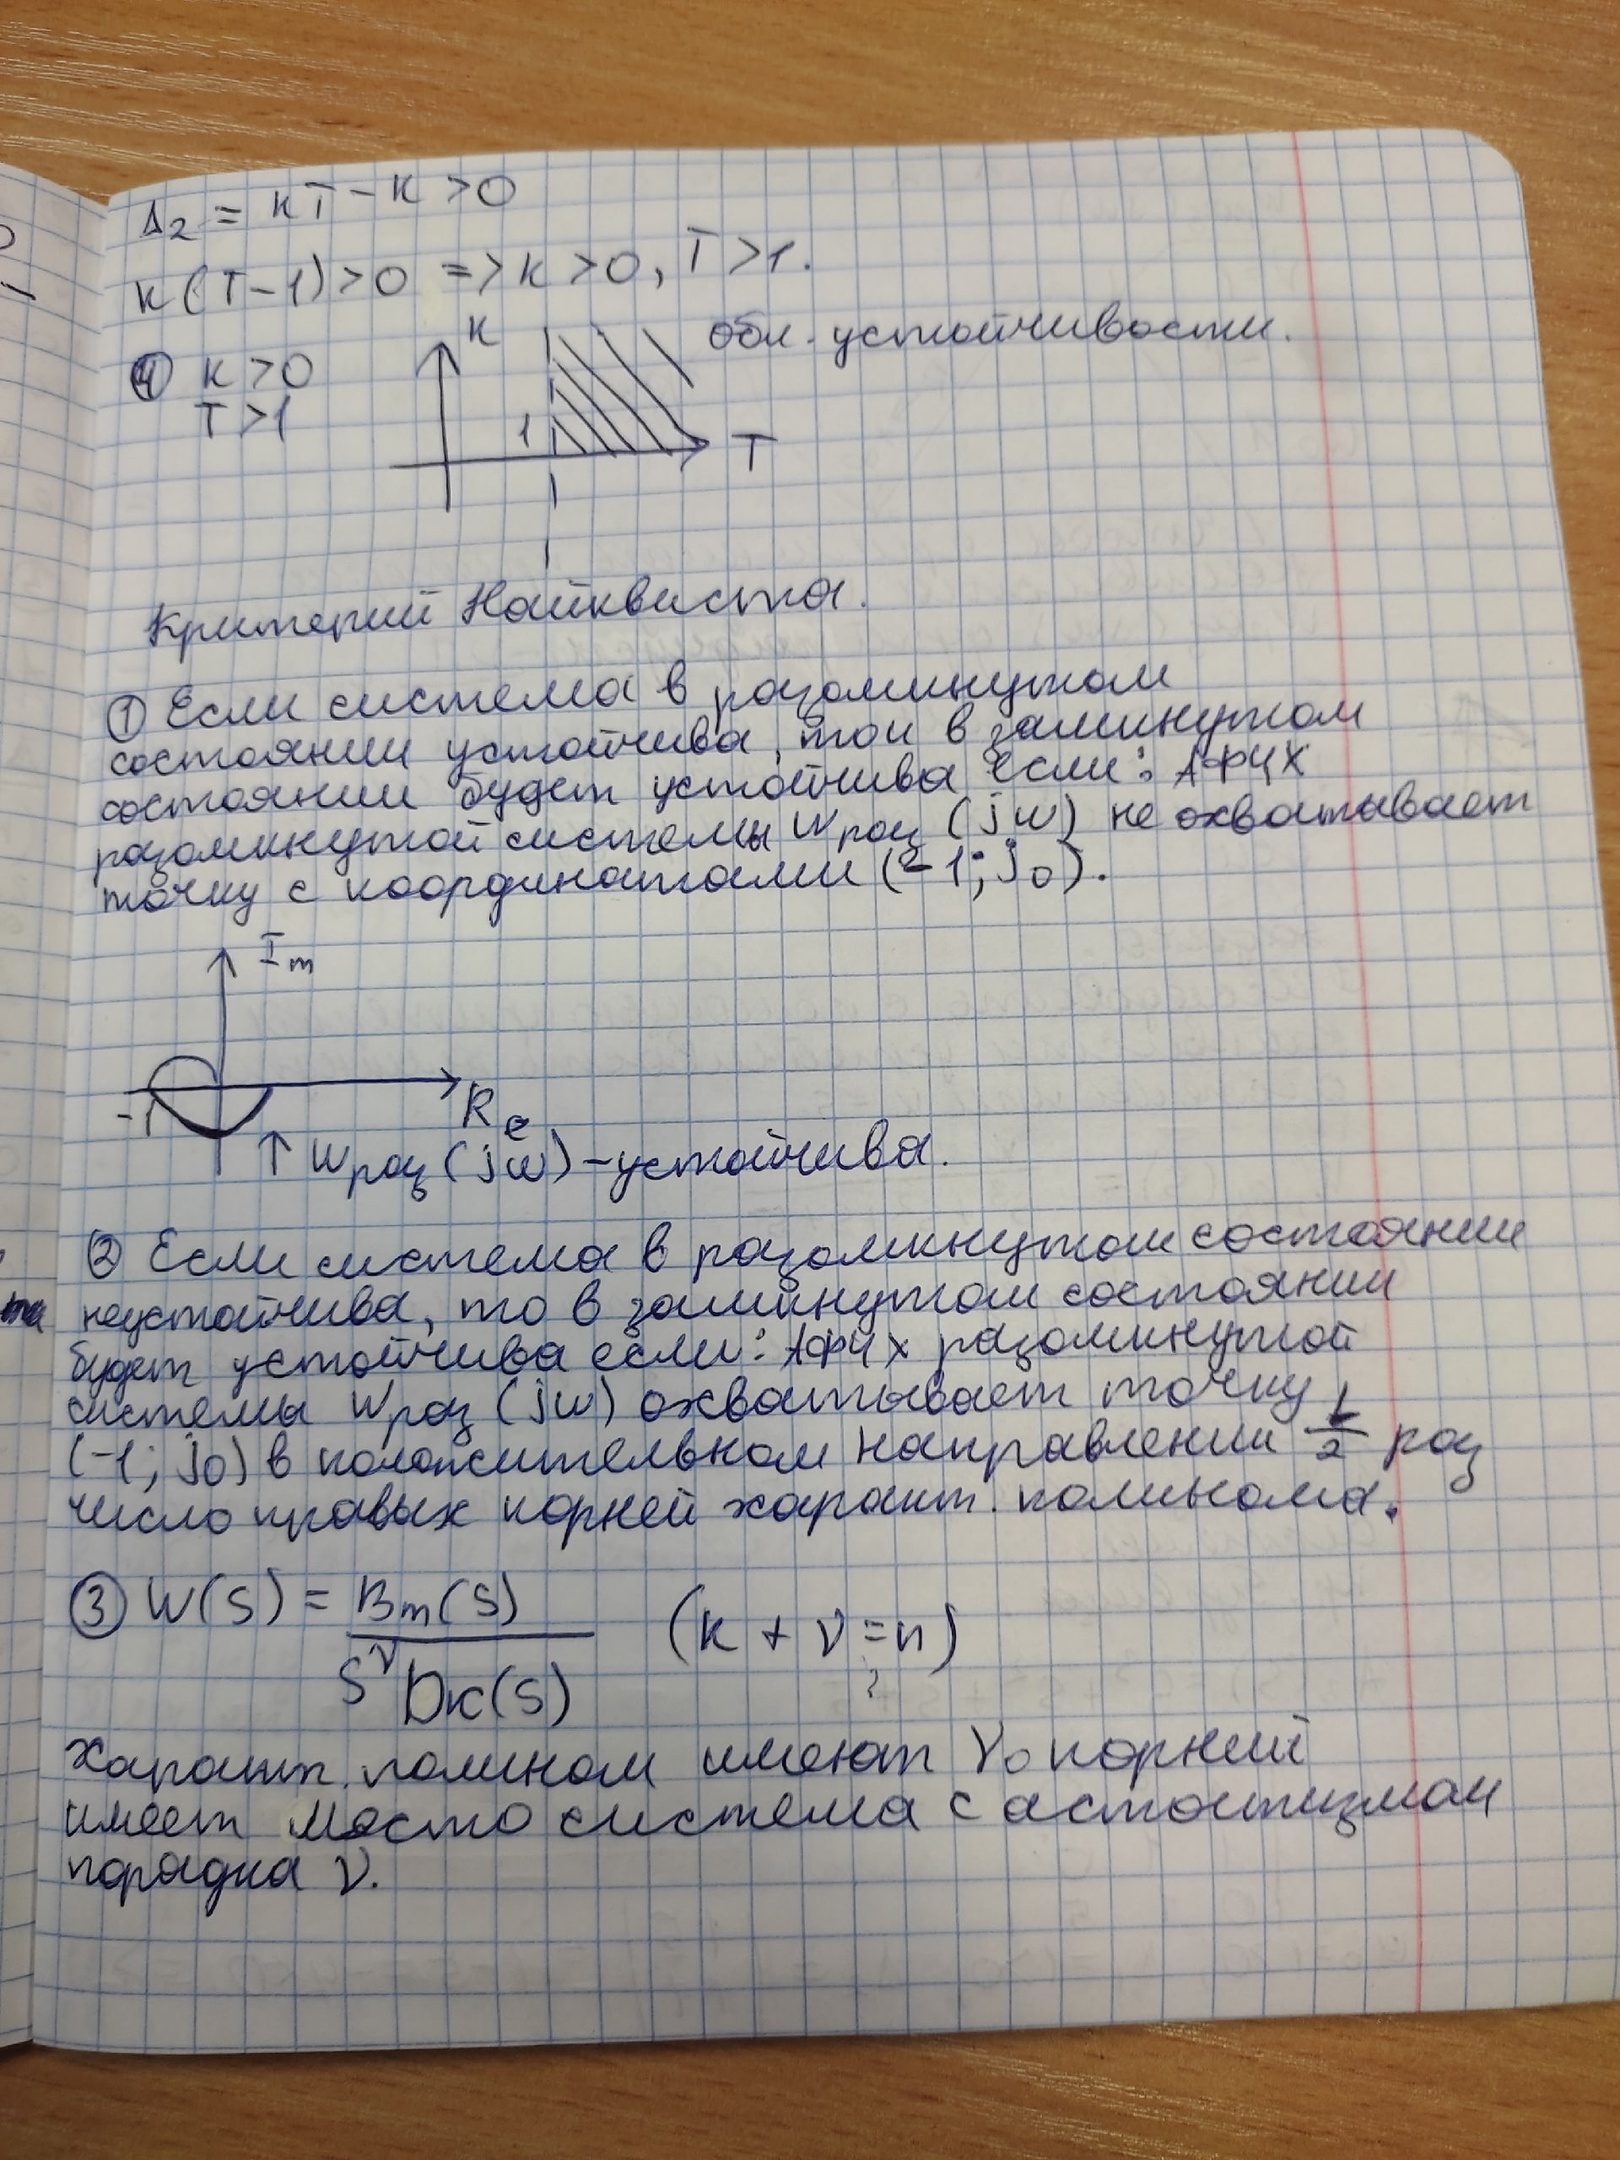 Δ₂ = кT - к > 0
к(T-1)>0 => к >0, T>1.
④ к >0
T>1
к
обл. устойчивости.
1
T
Критерий Найквиста.
① Если система в разомкнутом
состоянии устойчива, то и в замкнутом
состоянии будет устойчива если: АФЧХ
разомкнутой системы Wраз (jw) не охватывает
точку с координатами (-1; j0).
Im
-1
Re
↑ Wраз (jw) - устойчива.
② Если система в разомкнутом состоянии
неустойчива, то в замкнутом состоянии
будет устойчива если: АФЧХ разомкнутой
системы Wраз (jw) охватывает точку
(-1; j0) в положительном направлении 1/2 раз
число правых корней характ. полинома.
③ W(S) = Bm(S) / S^ν Dк(S) (к + ν = n)
?
Характ. полином имеют ν₀ корней
имеет место система с астатизмом
порядка ν.